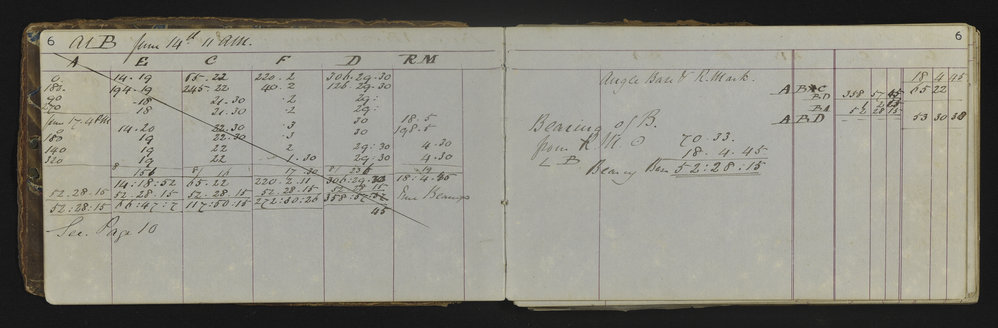 6
At B June 14th 11 A.M.
A E C F D R M
0. 14.19 65.22 220.2 306.29.30
180. 194.19 245.22 40.2 126.29.30
90 18 21.30 2 29:
270 18 21.30 2 29:
June 17. 4 P.M
0 14.20 22.30 3 30 18.5
180 19 22.30 3 30 198.5
140 19 22 2 29:30 4.30
320 19 22 1.30 29:30 4.30
14:18:52 65.22 220.2.11 18.4.45
52.28.15 52.28.15 52.28.15 52.28.15 True Bearings
52:28:15 66:47:7 117:50:15 272:30:26
45
See Page 10
6
Angle Base & R. Mark. 18 4 45
A B C 65 22
B D 358 57 45
B A 52 28 15
A B D 53 30 30
Bearing of B.
from R.M 70.33.
18.4.45
Bearing Base 52:28:15